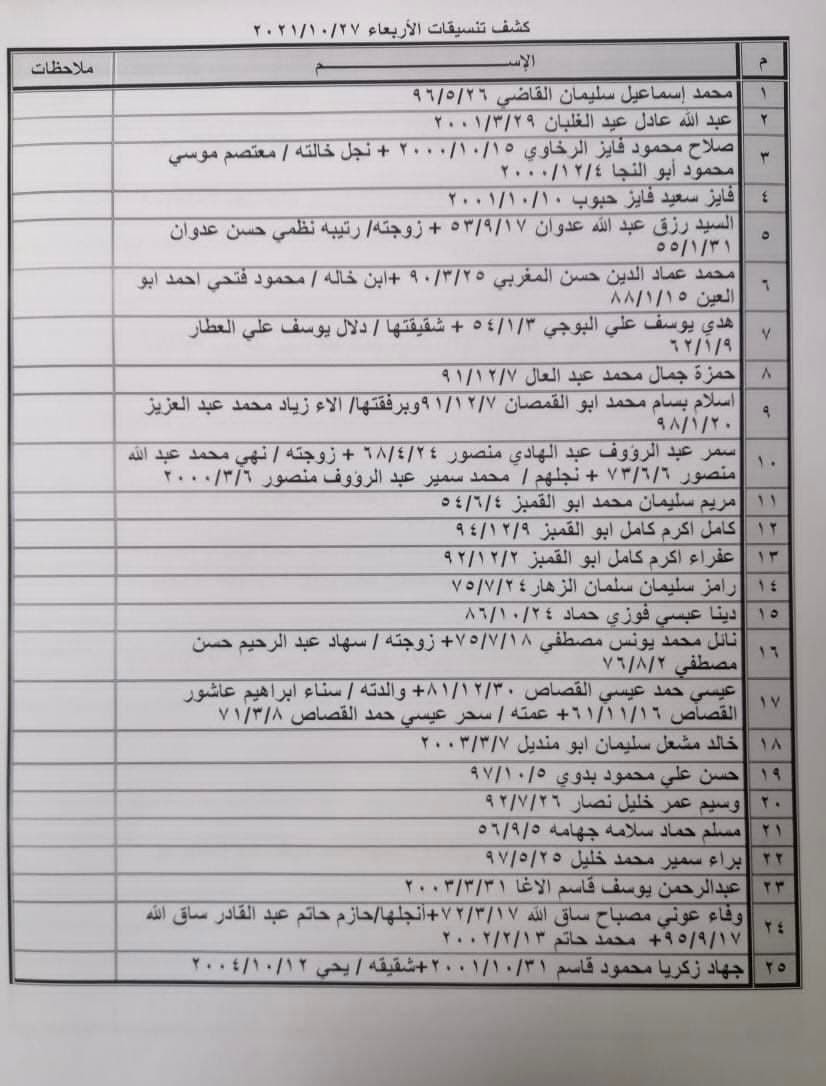 كشف تنسيقات الأربعاء ٢٠٢١/١٠/٢٧
م الإســـــــــم ملاحظات
١ محمد إسماعيل سليمان القاضي ٩٦/٥/٢٦
٢ عبد الله عادل عيد الغلبان ٢٠٠١/٣/٢٩
٣ صلاح محمود فايز الرخاوي ٢٠٠٠/١٠/١٥ + نجل خالته / معتصم موسي
محمود أبو النجا ٢٠٠٠/١٢/٤
٤ فايز سعيد فايز حبوب ٢٠٠١/١٠/١٠
٥ السيد رزق عبد الله عدوان ٥٣/٩/١٧ + زوجته/ رتيبه نظمي حسن عدوان
٥٥/١/٣١
٦ محمد عماد الدين حسن المغربي ٩٠/٣/٢٥ +ابن خاله / محمود فتحي احمد ابو
العين ٨٨/١/١٥
٧ هدي يوسف علي البوجي ٥٤/١/٣ + شقيقتها / دلال يوسف علي العطار
٦٢/١/٩
٨ حمزة جمال محمد عبد العال ٩١/١٢/٧
٩ اسلام بسام محمد ابو القمصان ٩١/١٢/٧وبرفقتها/ الاء زياد محمد عبد العزيز
٩٨/١/٢٠
١٠ سمر عبد الرؤوف عبد الهادي منصور ٦٨/٤/٢٤ + زوجته / نهي محمد عبد الله
منصور ٧٣/٦/٦ + نجلهم / محمد سمير عبد الرؤوف منصور ٢٠٠٠/٣/٦
١١ مريم سليمان محمد ابو القمبز ٥٤/٦/٤
١٢ كامل اكرم كامل ابو القمبز ٩٤/١٢/٩
١٣ عفراء اكرم كامل ابو القمبز ٩٢/١٢/٢
١٤ رامز سليمان سلمان الزهار ٧٥/٧/٢٤
١٥ دينا عبسي فوزي حماد ٨٦/١٠/٢٤
١٦ نائل محمد يونس مصطفي ٧٥/٧/١٨+ زوجته / سهاد عبد الرحيم حسن
مصطفي ٧٦/٨/٢
١٧ عيسي حمد عيسي القصاص ٨١/١٢/٣٠+ والدته / سناء ابراهيم عاشور
القصاص ٦١/١١/١٦+ عمته / سحر عيسي حمد القصاص ٧١/٣/٨
١٨ خالد مشعل سليمان ابو منديل ٢٠٠٣/٣/٧
١٩ حسن علي محمود بدوي ٩٧/١٠/٥
٢٠ وسيم عمر خليل نصار ٩٢/٧/٢٦
٢١ مسلم حماد سلامه جهامه ٥٦/٩/٥
٢٢ براء سمير محمد خليل ٩٧/٥/٢٥
٢٣ عبدالرحمن يوسف قاسم الاغا ٢٠٠٣/٣/٣١
٢٤ وفاء عوني مصباح ساق الله ٧٢/٣/١٧+أنجلها/حازم حاتم عبد القادر ساق الله
٩٥/٩/١٧+ محمد حاتم ٢٠٠٢/٢/١٣
٢٥ جهاد زكريا محمود قاسم ٢٠٠١/١٠/٣١+شقيقه / يحي ٢٠٠٤/١٠/١٢